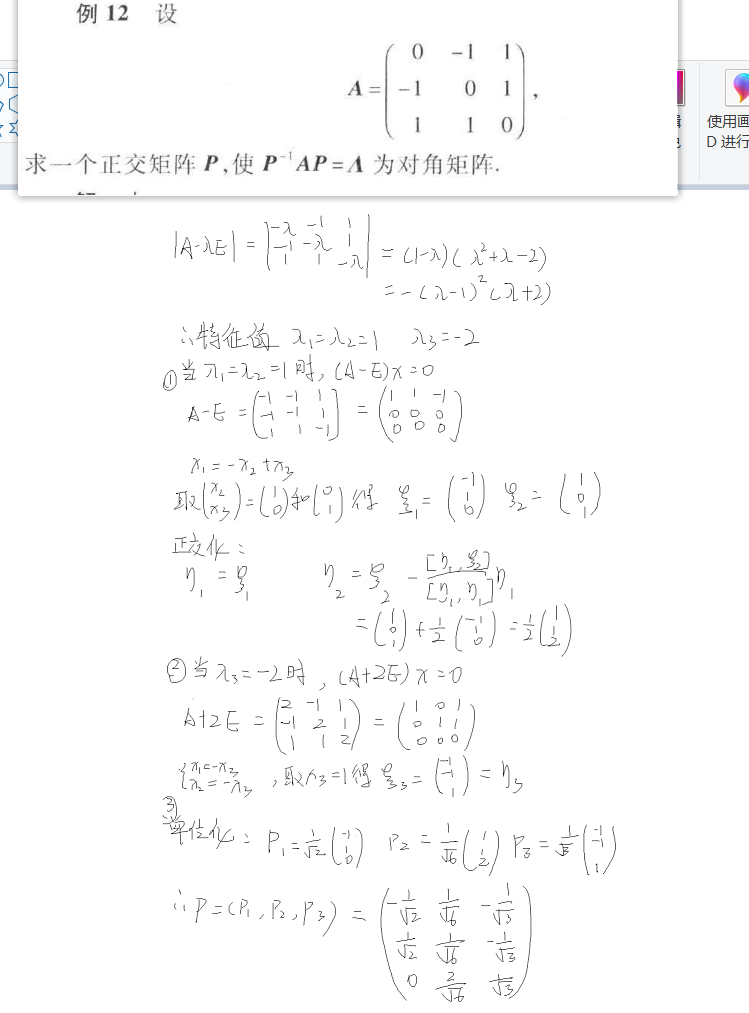 例 12 设
A = ( 0 -1 1
-1 0 1
1 1 0 ) ,
求一个正交矩阵 P,使 P⁻¹AP=Λ 为对角矩阵.
使用画
D 进行
|A-λE| = | -λ -1 1
-1 -λ 1
1 1 -λ | = (1-λ)(λ²+λ-2)
= -(λ-1)²(λ+2)
∴特征值 λ₁=λ₂=1 λ₃=-2
①当 λ₁=λ₂=1时, (A-E)x=0
A-E = ( -1 -1 1
-1 -1 1
1 1 -1 ) = ( 1 1 -1
0 0 0
0 0 0 )
x₁ = -x₂ + x₃
取(x₂ x₃)=(1 0)和(0 1) 得 ξ₁ = (-1 1 0) ξ₂ = (1 0 1)
正交化:
η₁ = ξ₁ η₂ = ξ₂ - [η₁, ξ₂]/[η₁, η₁] η₁
= (1 0 1) + 1/2 (-1 1 0) = 1/2 (1 1 2)
②当 λ₃=-2时, (A+2E)x=0
A+2E = ( 2 -1 1
-1 2 1
1 1 2 ) = ( 1 0 1
0 1 1
0 0 0 )
{ x₁=-x₃
x₂=-x₃ , 取x₃=1得 ξ₃ = (-1 -1 1) = η₃
③
单位化: P₁ = 1/√2 (-1 1 0) P₂ = 1/√6 (1 1 2) P₃ = 1/√3 (-1 -1 1)
∴P=(P₁, P₂, P₃) = ( -1/√2 1/√6 -1/√3
1/√2 1/√6 -1/√3
0 2/√6 1/√3 )